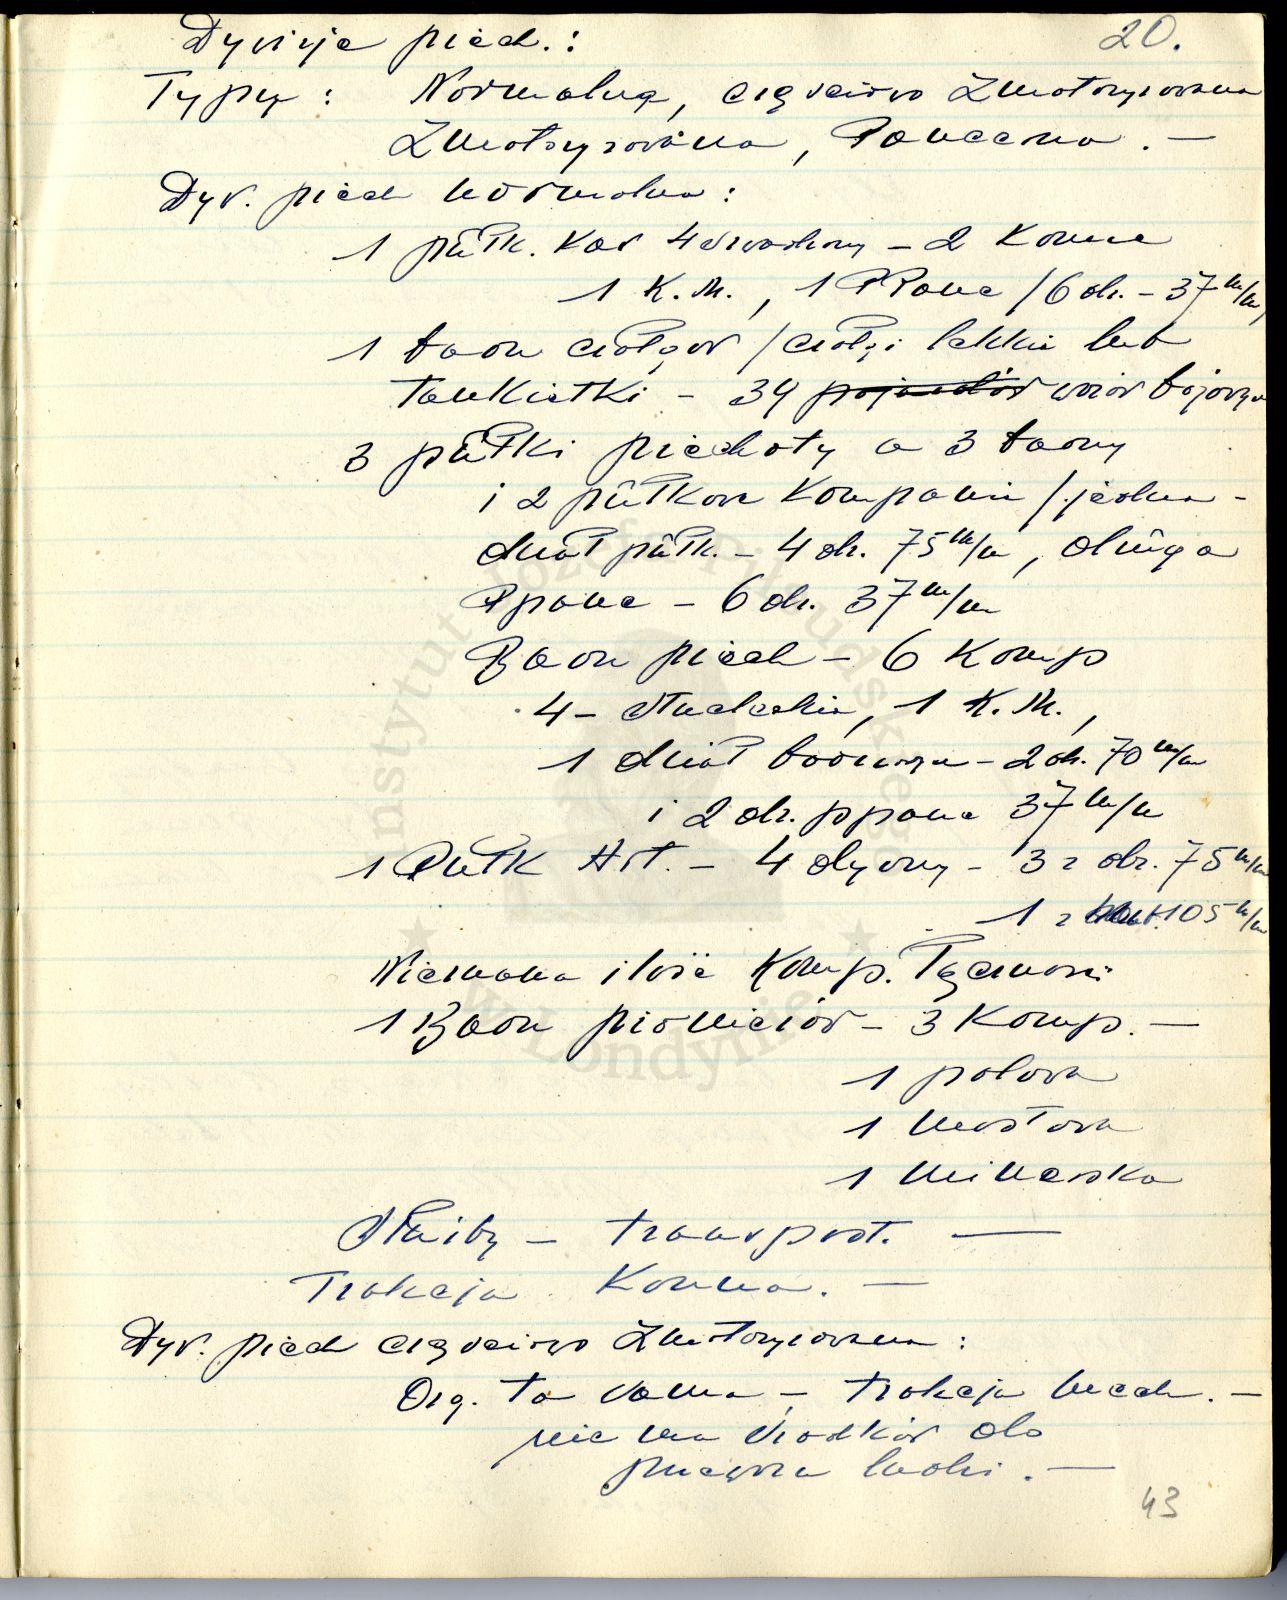 20.
Dywizje piech.:
Typy: Normalna, częściowo Zmotoryzowana
Zmotoryzowana, Pancerna. —
Dyw. piech normalna:
1 pułk. Kaw 4 szwadrony – 2 Konne
1 K.M., 1 PPanc /6 dz. – 37 m/m/
1 baon czołgów /czołgi lekkie lub
tankietki – 34 pojazdów wozów bojowych
3 pułki piechoty a 3 baony
i 2 pułkowe Kompanie /jedna –
dział pułk. – 4 dz. 75 m/m, druga
Ppanc – 6 dz. 37 m/m
Baon piech – 6 Komp
4 – strzeleckie, 1 K.M.,
1 dział baonowa – 2 dz. 70 m/m
i 2 dz. ppanc 37 m/m
1 Pułk Art. – 4 dyony – 3 z dz. 75 m/m
1 z haub. 105 m/m
Nieznana ilość Komp. Łączności
1 Baon pionierów – 3 Komp. —
1 polowa
1 mostowa
1 minerska
Służby – transport. —
Trakcja Konna. —
Dyw. piech częściowo Zmotoryzowana:
Org. ta sama – trakcja mech. —
nie ma środków do
przewozu ludzi. —
43
Instytut Józefa Piłsudskiego
w Londynie